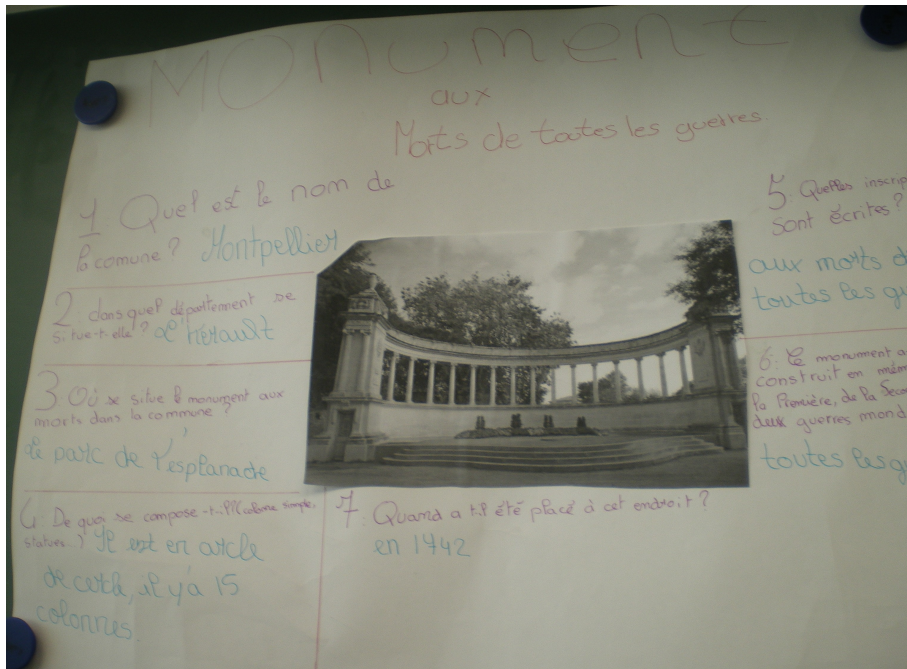 MONUMENT
aux
Morts de toutes les guerres.
1. Quel est le nom de
la comune? Montpellier
2. dans quel département se
situe-t-elle? L'hérault
3. Où se situe le monument aux
morts dans la commune?
le parc de l'esplanade
4. De quoi se compose-t-il? (colonne simple,
statues..) Il est en arcle
de cercle, il y'a 15
colonnes.
5. Quelles inscrip
sont écrites?
aux morts d
toutes les gu
6. Le monument a
construit en mém
la Première, de la Secon
deux guerres mond
toutes les g
7. Quand a t-il été placé à cet endroit?
en 1942